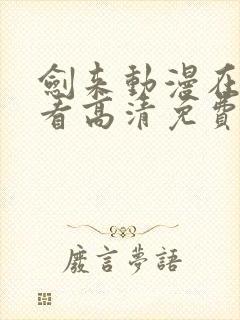 劍来動漫在
看高清免費
廢言夢語